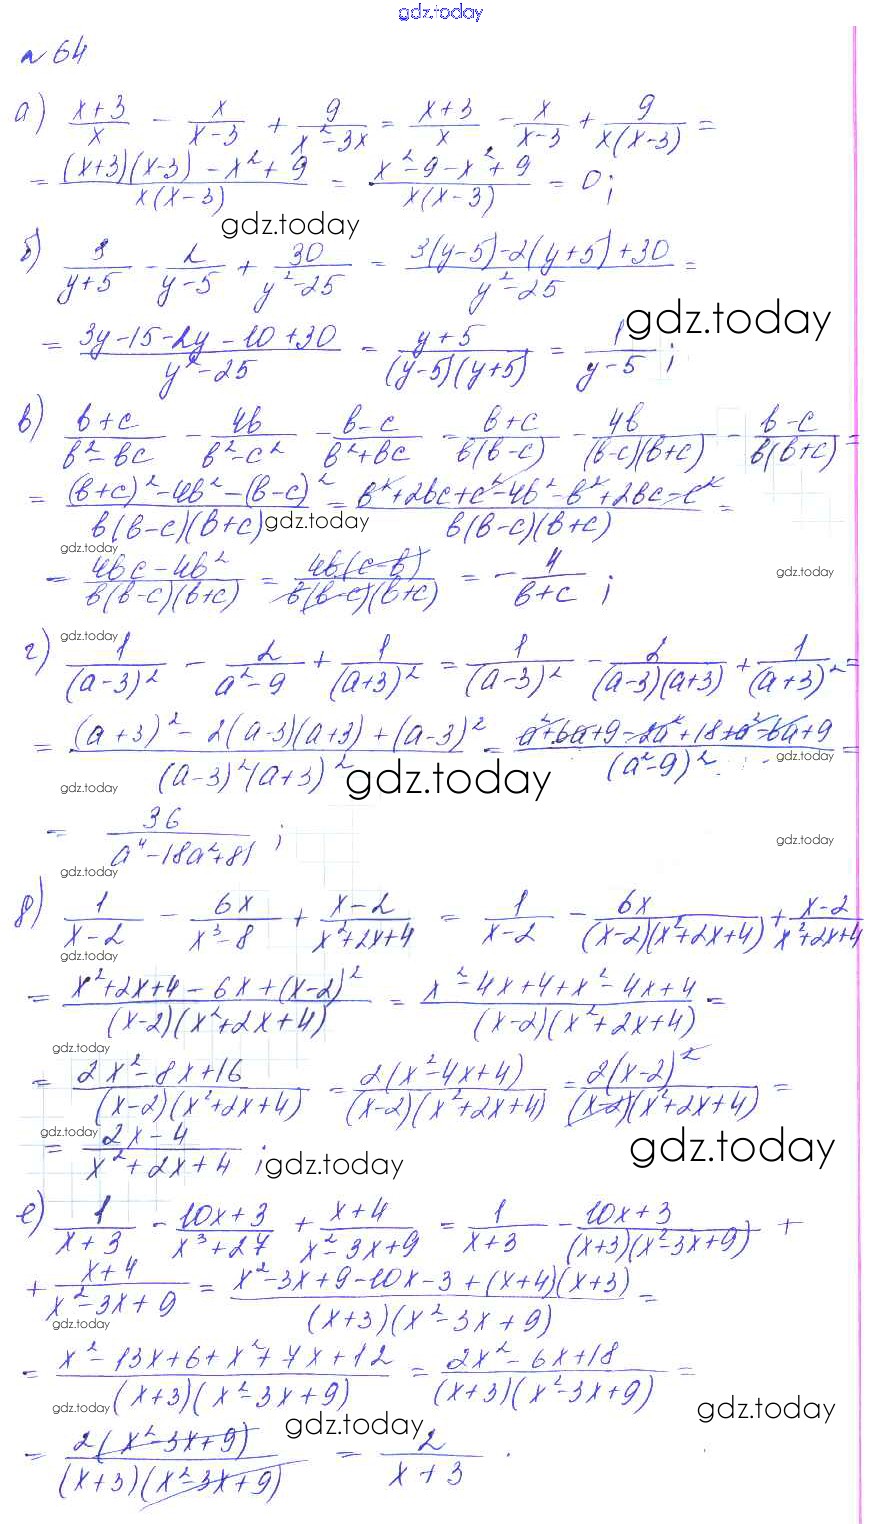 gdz.today
№ 64
а) (x+3)/x - x/(x-3) + 9/(x²-3x) = (x+3)/x - x/(x-3) + 9/(x(x-3)) =
= ((x+3)(x-3) - x² + 9)/(x(x-3)) = (x²-9-x²+9)/(x(x-3)) = 0;
gdz.today
б) 3/(y+5) - 2/(y-5) + 30/(y²-25) = (3(y-5)-2(y+5)+30)/(y²-25) =
gdz.today
= (3y-15-2y-10+30)/(y²-25) = (y+5)/((y-5)(y+5)) = 1/(y-5);
в) (b+c)/(b²-bc) - 4b/(b²-c²) - (b-c)/(b²+bc) = (b+c)/(b(b-c)) - 4b/((b-c)(b+c)) - (b-c)/(b(b+c)) =
= ((b+c)²-4b²-(b-c)²)/(b(b-c)(b+c)) = (b²+2bc+c²-4b²-b²+2bc-c²)/(b(b-c)(b+c)) =
gdz.today
gdz.today
gdz.today
= (4bc-4b²)/(b(b-c)(b+c)) = (4b(c-b))/(b(b-c)(b+c)) = - 4/(b+c);
gdz.today
г) 1/(a-3)² - 2/(a²-9) + 1/(a+3)² = 1/(a-3)² - 2/((a-3)(a+3)) + 1/(a+3)² =
= ((a+3)²-2(a-3)(a+3)+(a-3)²)/((a-3)²(a+3)²) = (a²+6a+9-2a²+18+a²-6a+9)/(a²-9)² =
gdz.today
gdz.today
gdz.today
= 36/(a⁴-18a²+81);
gdz.today
gdz.today
д) 1/(x-2) - 6x/(x³-8) + (x-2)/(x²+2x+4) = 1/(x-2) - 6x/((x-2)(x²+2x+4)) + (x-2)/(x²+2x+4)
gdz.today
= (x²+2x+4-6x+(x-2)²)/((x-2)(x²+2x+4)) = (x²-4x+4+x²-4x+4)/((x-2)(x²+2x+4)) =
gdz.today
= (2x²-8x+16)/((x-2)(x²+2x+4)) = (2(x²-4x+4))/((x-2)(x²+2x+4)) = (2(x-2)²)/((x-2)(x²+2x+4)) =
gdz.today
= (2x-4)/(x²+2x+4);
gdz.today
gdz.today
е) 1/(x+3) - (10x+3)/(x³+27) + (x+4)/(x²-3x+9) = 1/(x+3) - (10x+3)/((x+3)(x²-3x+9)) +
+ (x+4)/(x²-3x+9) = (x²-3x+9-10x-3+(x+4)(x+3))/((x+3)(x²-3x+9)) =
gdz.today
= (x²-13x+6+x²+7x+12)/((x+3)(x²-3x+9)) = (2x²-6x+18)/((x+3)(x²-3x+9)) =
gdz.today
gdz.today
gdz.today
= (2(x²-3x+9))/((x+3)(x²-3x+9)) = 2/(x+3).